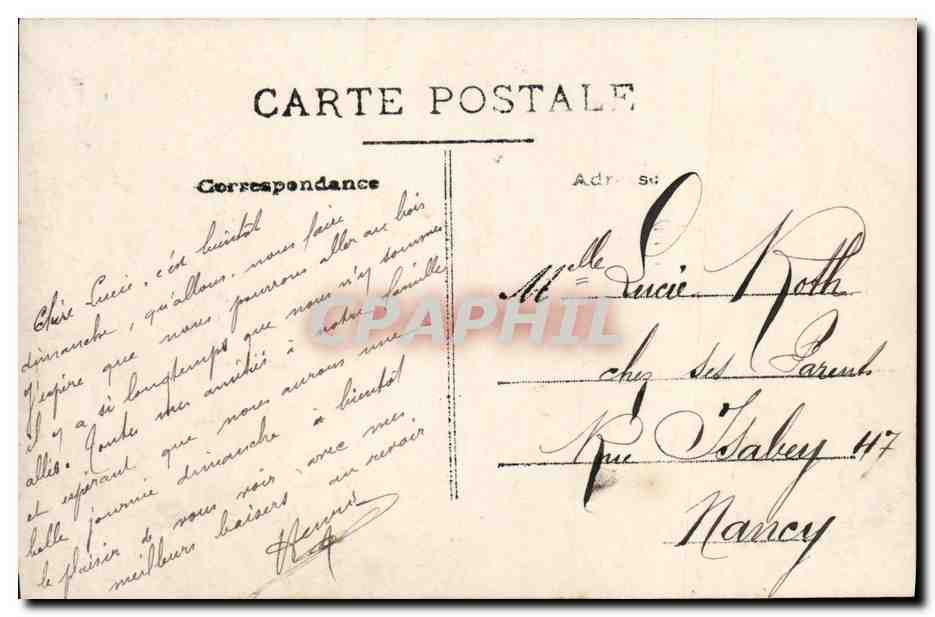 CARTE POSTALE
Correspondance
Adresse
Chère Lucie, c'est bientôt
dimanche, qu'allons-nous faire
J'espère que nous pourrons aller au bois
il y a si longtemps que nous n'y sommes
allés. Toutes mes amitiés à votre famille
et espérant que nous aurons une
belle journée dimanche à bientôt
le plaisir de vous voir avec mes
meilleurs baisers au revoir
Melle Lucie Roth
chez ses Parents
Rue Isabey 47
Nancy
CPAPHIL